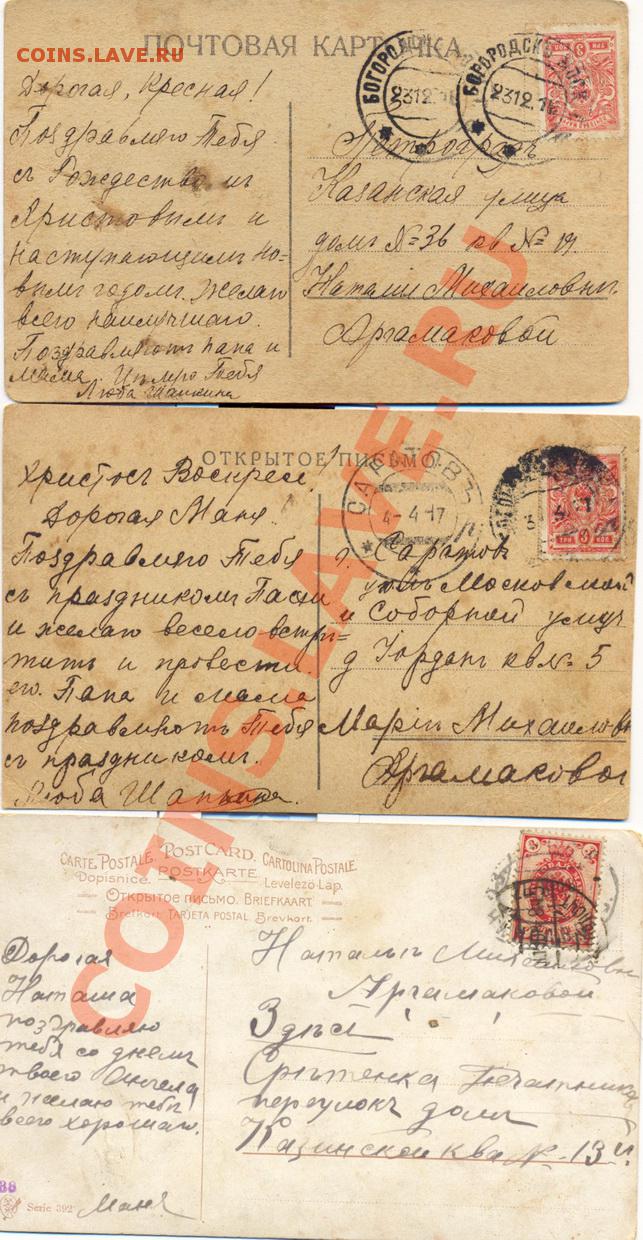 COINS.LAVE.RU
ПОЧТОВАЯ КАРТОЧКА
БОГОРОДСК
23 12 16
БОГОРОДСК МОСК
23 12 16
Дорогая, Кресная!
Поздравляю Тебя
съ Рождествомъ
Христовымъ и
наступающимъ но=
вымъ годомъ. Желаю
всего наилучшаго.
Поздравляютъ папа и
мама. Цѣлую Тебя
Люба Шапкина
Петроградъ
Казанская улица
домъ № 36 кв №
Наталіи Михаиловны
Аргамаковой
ОТКРЫТОЕ ПИСЬМО
САРАТОВЪ
4-4-17
ТРИ 3 КОП
Христосъ Воскресъ!
Дорогая Маня.
Поздравляю Тебя
съ праздникомъ Пасхи
и желаю весело встрѣ=
тить и провести
его. Папа и мама
поздравляютъ Тебя
съ праздникомъ.
Люба Шапкина.
г. Саратовъ
уголъ Московской
и Соборной улиц
д Іорданъ кв № 5
Маріи Михаиловн
Аргамаковой
CARTE POSTALE. POSTCARD. CARTOLINA POSTALE
Dopisnice. POSTKARTE Levelező-Lap.
ОТКРЫТОЕ ПИСЬМО. BRIEFKAART
Brefkort. TARJETA POSTAL. Brevkort.
Дорогая
Наташа
поздравляю
тебя со днемъ
твоего Ангела
и желаю тебѣ
всего хорошаго.
Маня
Наталіи Михаиловн
Аргамаковой
Здѣсь
Срѣтенка Печатников
переулокъ домъ
Казинской ква № 13й.
Serie 392
COINS.LAVE.RU